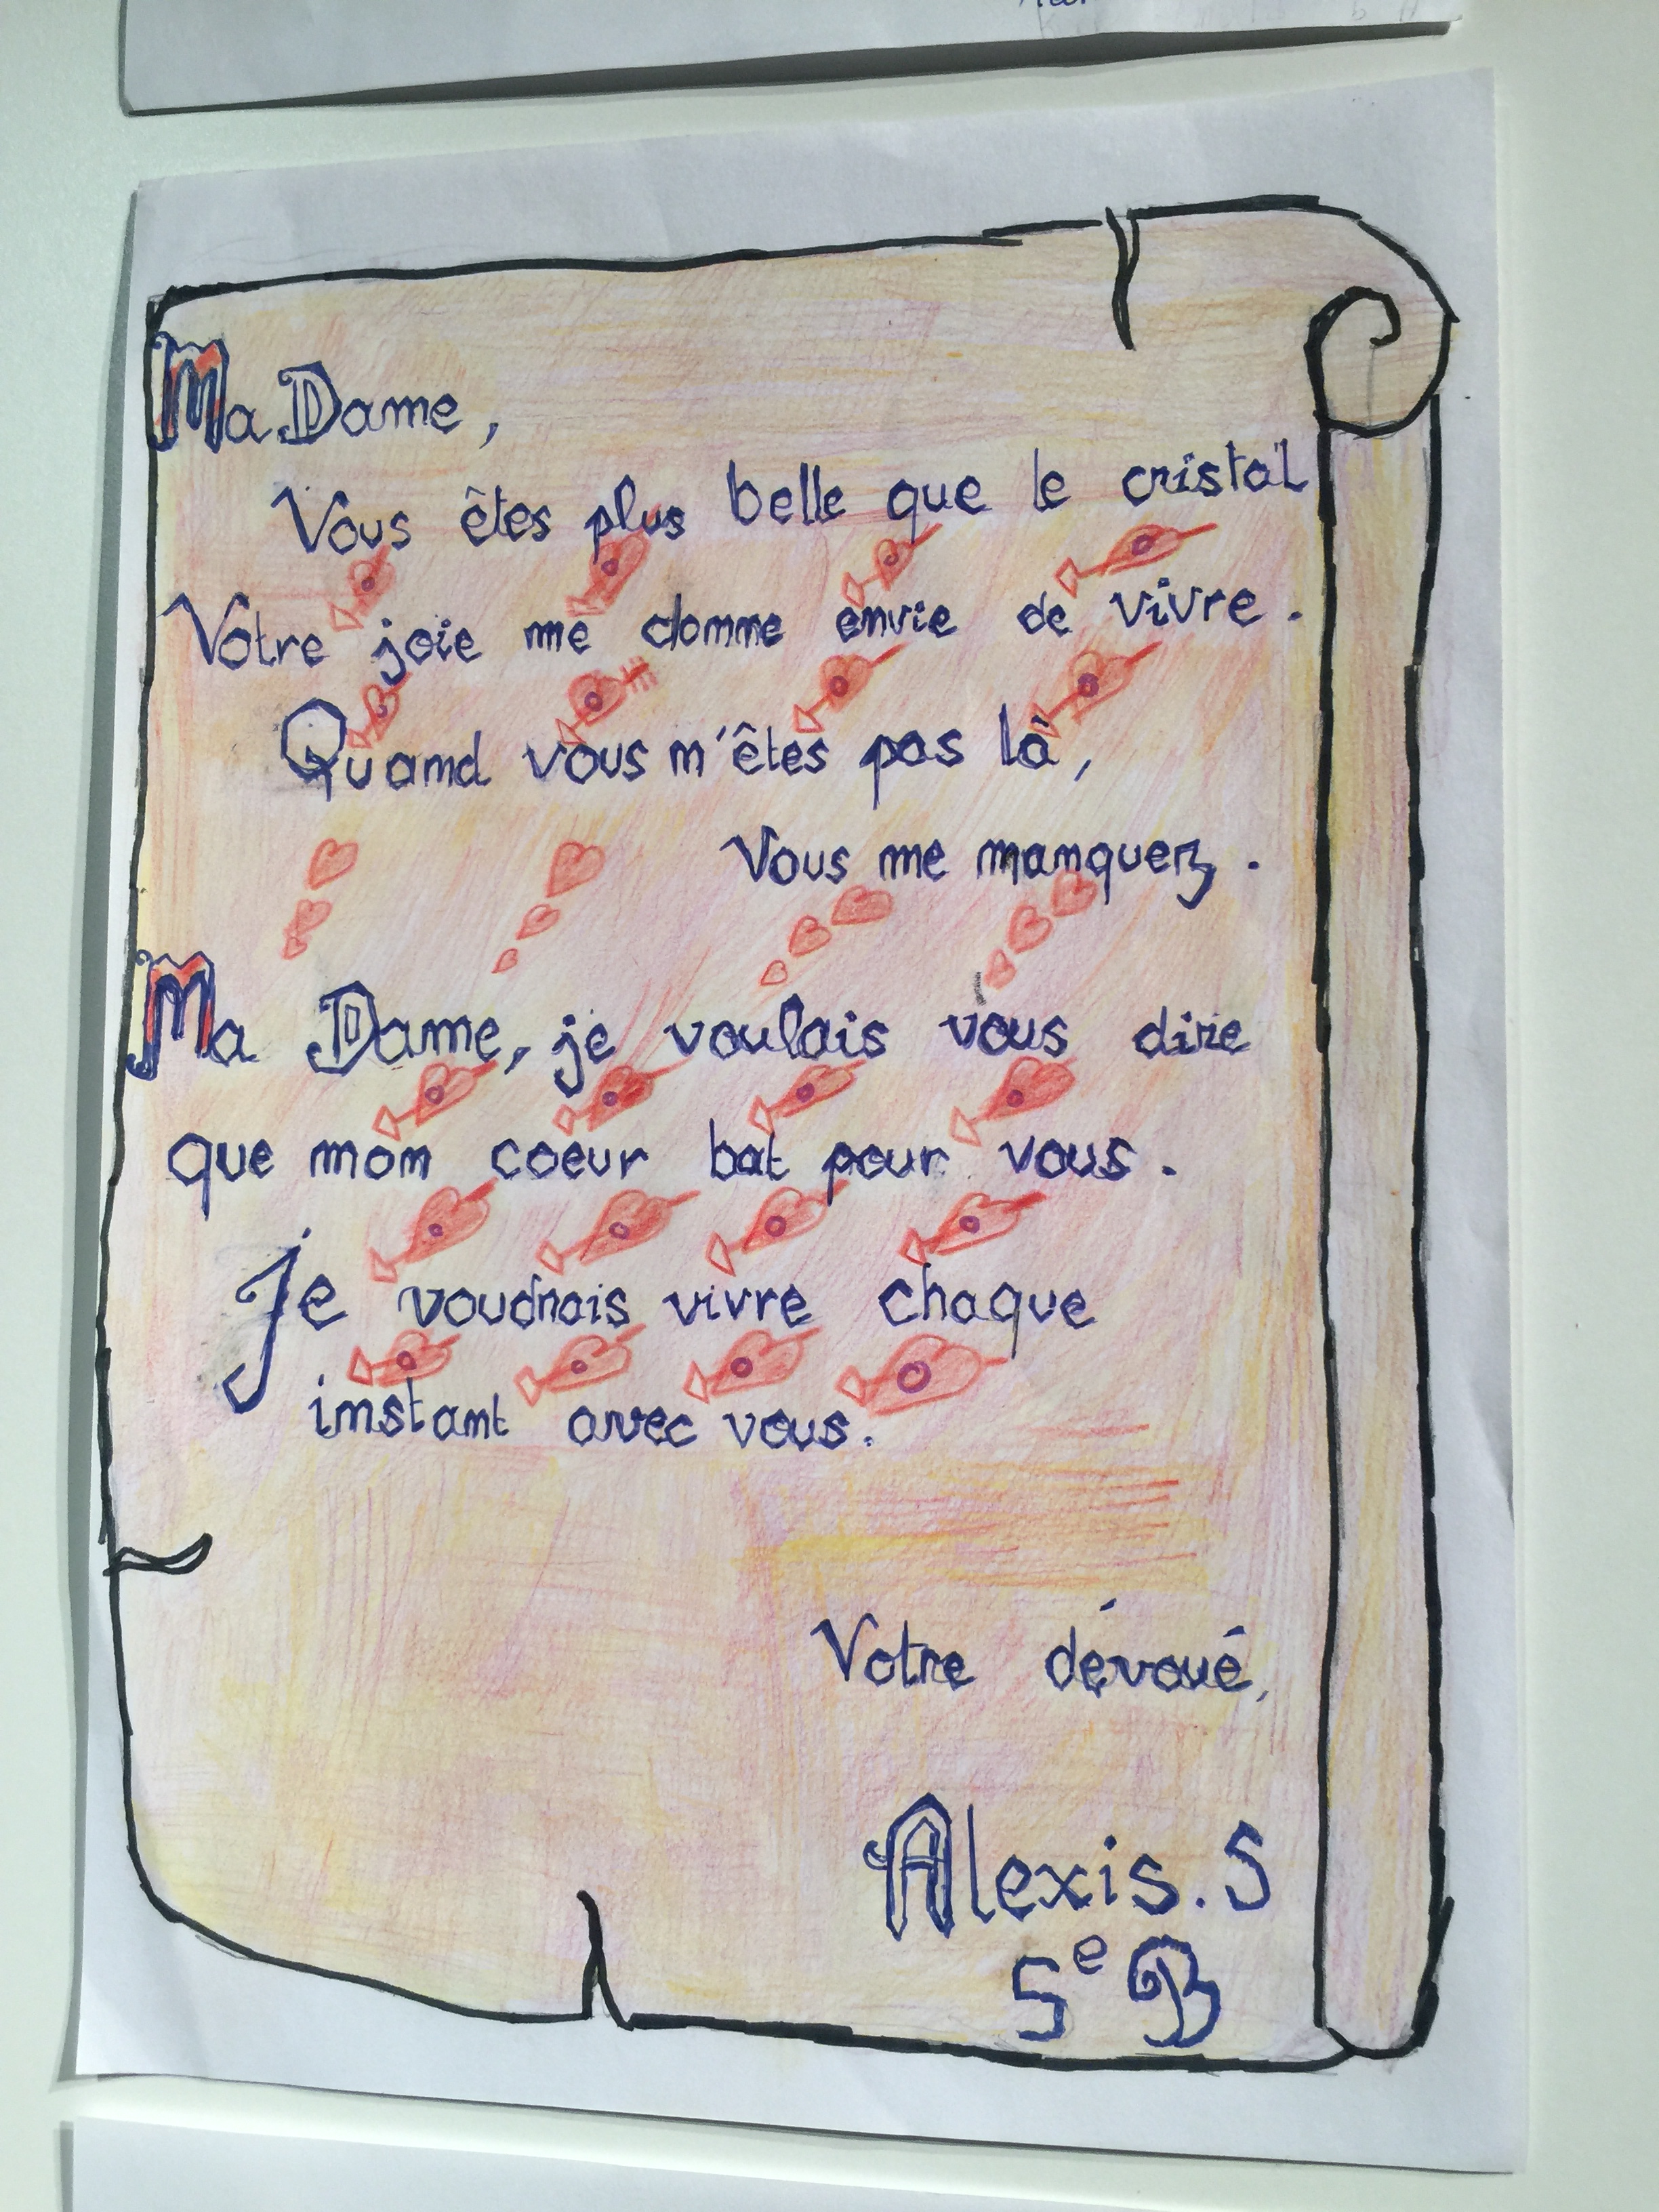 Ma Dame,
Vous êtes plus belle que le cristal
Votre joie me donne envie de vivre.
Quand vous n'êtes pas là,
Vous me manquez.
Ma Dame, je voulais vous dire
que mon coeur bat pour vous.
Je voudrais vivre chaque
instant avec vous.
Votre dévoué,
Alexis. S
5e B